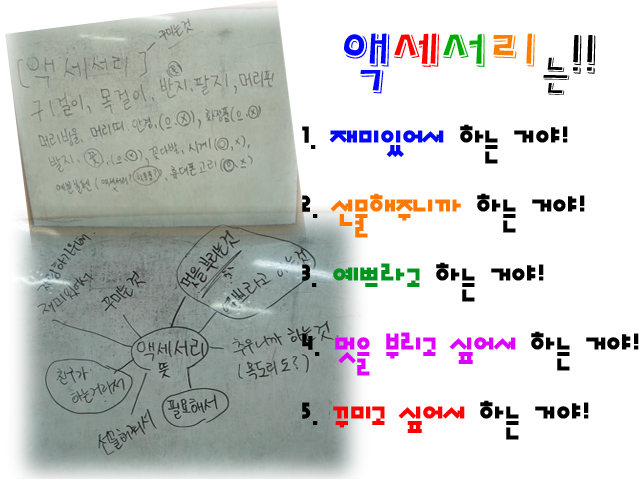 액세서리는!!
1. 재미있어서 하는 거야!
2. 선물해주니까 하는 거야!
3. 예쁘라고 하는 거야!
4. 멋을 부리고 싶어서 하는 거야!
5. 꾸미고 싶어서 하는 거야!
꾸미는것
[액세서리]
귀걸이, 목걸이, 반지, 팔지, 머리핀
머리방울, 머리띠, 안경, (O ⓧ), 화장품(O ⓧ)
발지, 꽃, (O ⓧ), 꽃다발, 시계(O, X)
휴대폰고리(O, X)
재미있어서
꾸미는것
멋을 부리는것
예쁘라고 하는것
액세서리 뜻
추우니까 하는것
(목도리도?)
친구가
하는거라서
선물해줘서
필요해서